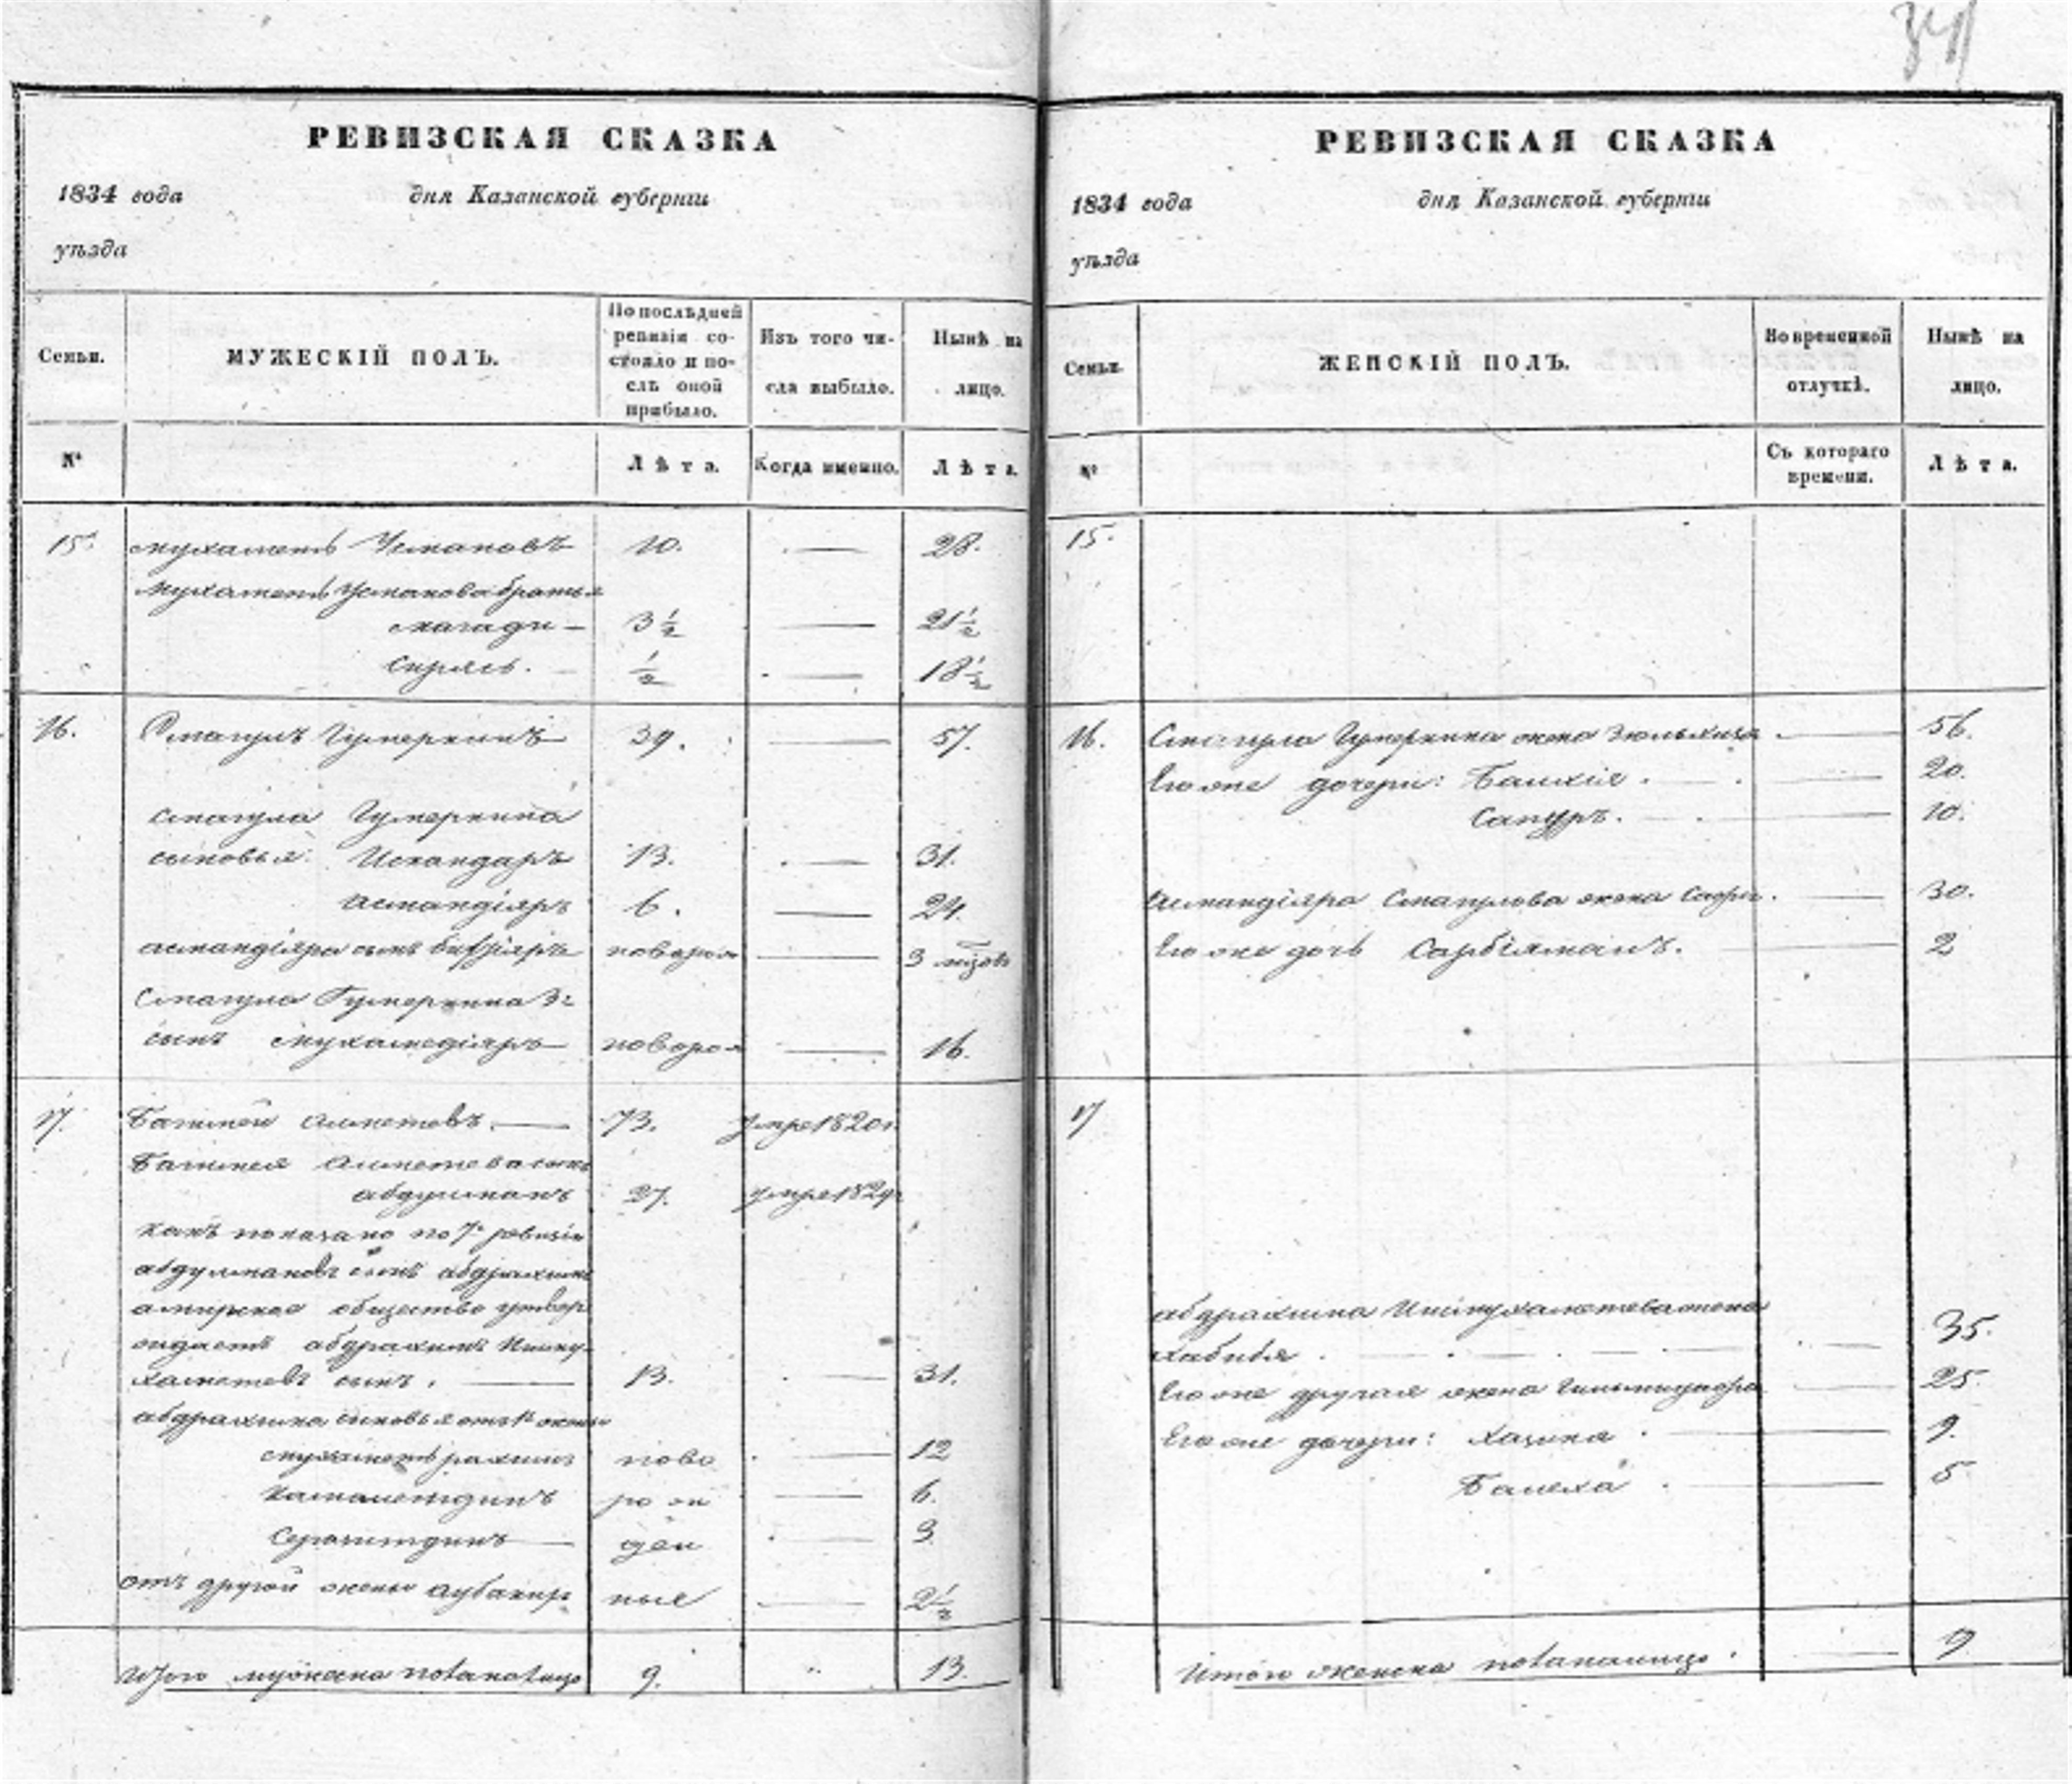 34
РЕВИЗСКАЯ СКАЗКА
1834 года дня Казанской губернiи
уѣзда
Семьи. МУЖЕСКIЙ ПОЛЪ. По послѣдней ревизiи состояло и послѣ оной прибыло. Изъ того числа выбыло. Нынѣ на лицо.
№ Лѣта. Когда именно. Лѣта.
15. Мухаметъ Усмановъ 10. — 28.
Мухаметя Усманова братья
Магади — 3 1/2 — 21 1/2
1/2 — 18 1/2
16. Смагулъ Гумеркинъ 39. — 57.
Смагула Гумеркина
сыновья: Искандаръ 13. — 31.
Асмандiяръ 6. — 24.
Асмандiяра сынъ новорож — 3 мѣсяц
Смагула Гумеркина 3й
сынъ Мухамедiяръ новорож — 16.
17. Ахметевъ. — 73. умре 1820г.
Ахметева сынъ
Абдулманъ 27. умре 1829г
какъ показано по 7й ревизiи
Абдулмановъ сынъ Абдрахимъ
а мирское общество утвер
ждаетъ Абдрахимъ Ишму-
хаметевъ сынъ. — 13. — 31.
Абдрахима сыновья отъ 1й жены
Мухаметърахимъ ново — 12
Камалетдинъ ро ж — 6.
Серазитдинъ — ден — 3
отъ другой жены Аубакир ные — 2 1/2
Итого мужеска пола налицо 9. " 13.
РЕВИЗСКАЯ СКАЗКА
1834 года дня Казанской губернiи
уѣзда
Семьи. ЖЕНСКIЙ ПОЛЪ. Во временной отлучкѣ. Нынѣ на лицо.
№ Съ котораго времени. Лѣта.
15.
16. Смагула Гумеркина жена . — 56.
Его же дочери: . — 20.
Сапуръ. — 10.
Асмандiяра Смагулова жена . — 30.
Его же дочь Сарбiямалъ. — 2
17
Абдрахима Ишмухаметева жена
Хабибя . — 35.
Его же другая жена — 25.
Его же дочери: Хазина . — 9.
. — 5
Итого женска пола налицо. — 9